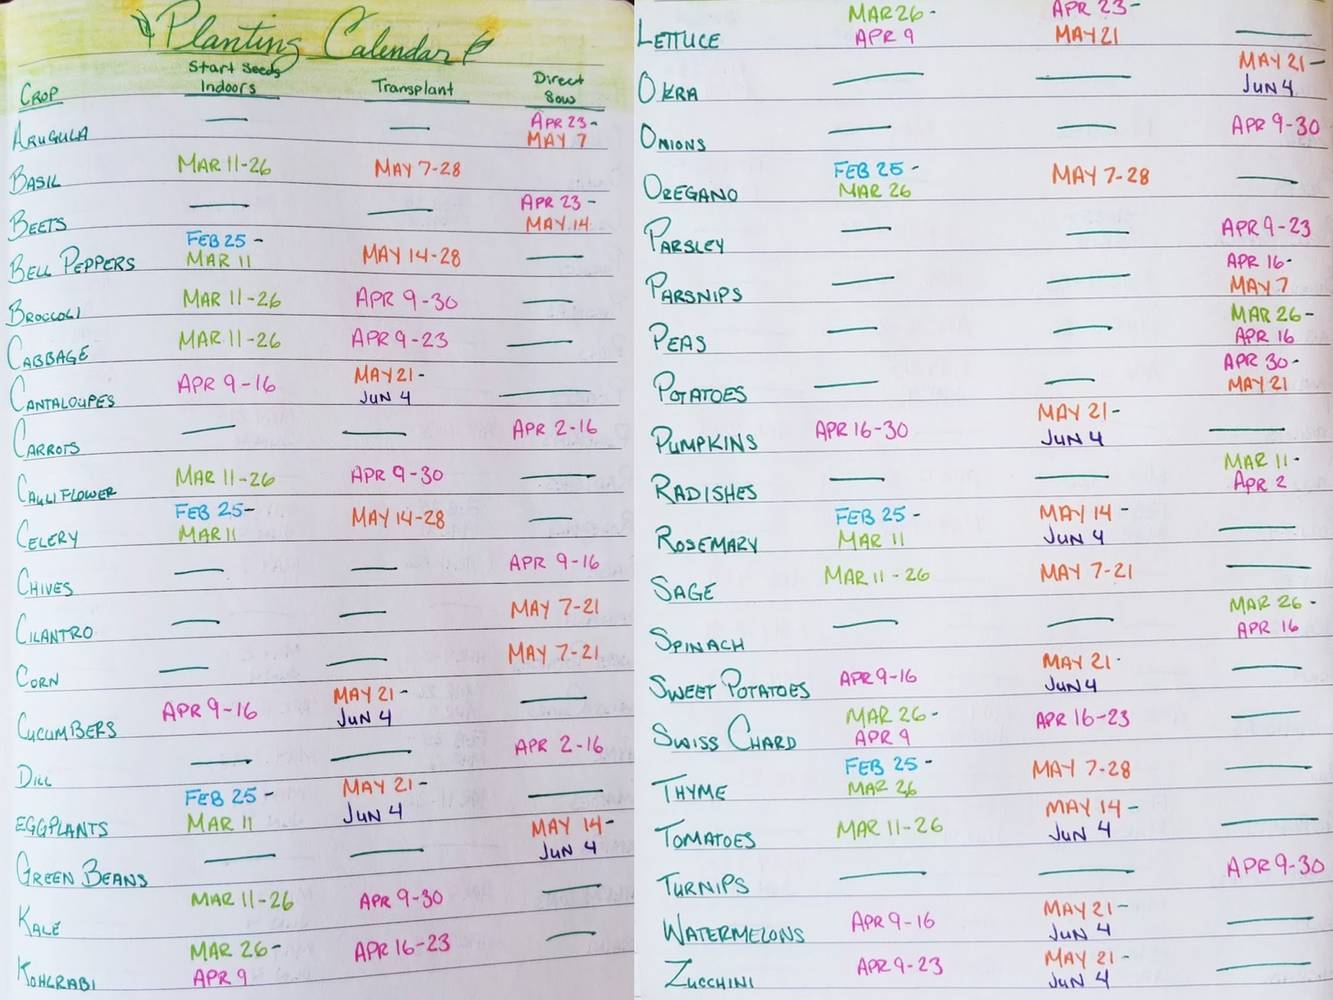 Planting Calendar
Crop Start Seeds Indoors Transplant Direct Sow
Arugula — — Apr 23 - May 7
Basil Mar 11-26 May 7-28
Beets — — Apr 23 - May 14
Bell Peppers Feb 25 - Mar 11 May 14-28 —
Broccoli Mar 11-26 Apr 9-30 —
Cabbage Mar 11-26 Apr 9-23 —
Cantaloupes Apr 9-16 May 21 - Jun 4 —
Carrots — — Apr 2-16
Cauliflower Mar 11-26 Apr 9-30 —
Celery Feb 25 - Mar 11 May 14-28 —
Chives — — Apr 9-16
Cilantro — — May 7-21
Corn — — May 7-21
Cucumbers Apr 9-16 May 21 - Jun 4 —
Dill — — Apr 2-16
Eggplants Feb 25 - Mar 11 May 21 - Jun 4 —
Green Beans — — May 14 - Jun 4
Kale Mar 11-26 Apr 9-30 —
Kohlrabi Mar 26 - Apr 9 Apr 16-23 —
Lettuce Mar 26 - Apr 9 Apr 23 - May 21 —
Okra — — May 21 - Jun 4
Onions — — Apr 9-30
Oregano Feb 25 - Mar 26 May 7-28 —
Parsley — — Apr 9-23
Parsnips — — Apr 16 - May 7
Peas — — Mar 26 - Apr 16
Potatoes — — Apr 30 - May 21
Pumpkins Apr 16-30 May 21 - Jun 4 —
Radishes — — Mar 11 - Apr 2
Rosemary Feb 25 - Mar 11 May 14 - Jun 4 —
Sage Mar 11-26 May 7-21 —
Spinach — — Mar 26 - Apr 16
Sweet Potatoes Apr 9-16 May 21 - Jun 4 —
Swiss Chard Mar 26 - Apr 9 Apr 16-23 —
Thyme Feb 25 - Mar 26 May 7-28 —
Tomatoes Mar 11-26 May 14 - Jun 4 —
Turnips — — Apr 9-30
Watermelons Apr 9-16 May 21 - Jun 4 —
Zucchini Apr 9-23 May 21 - Jun 4 —